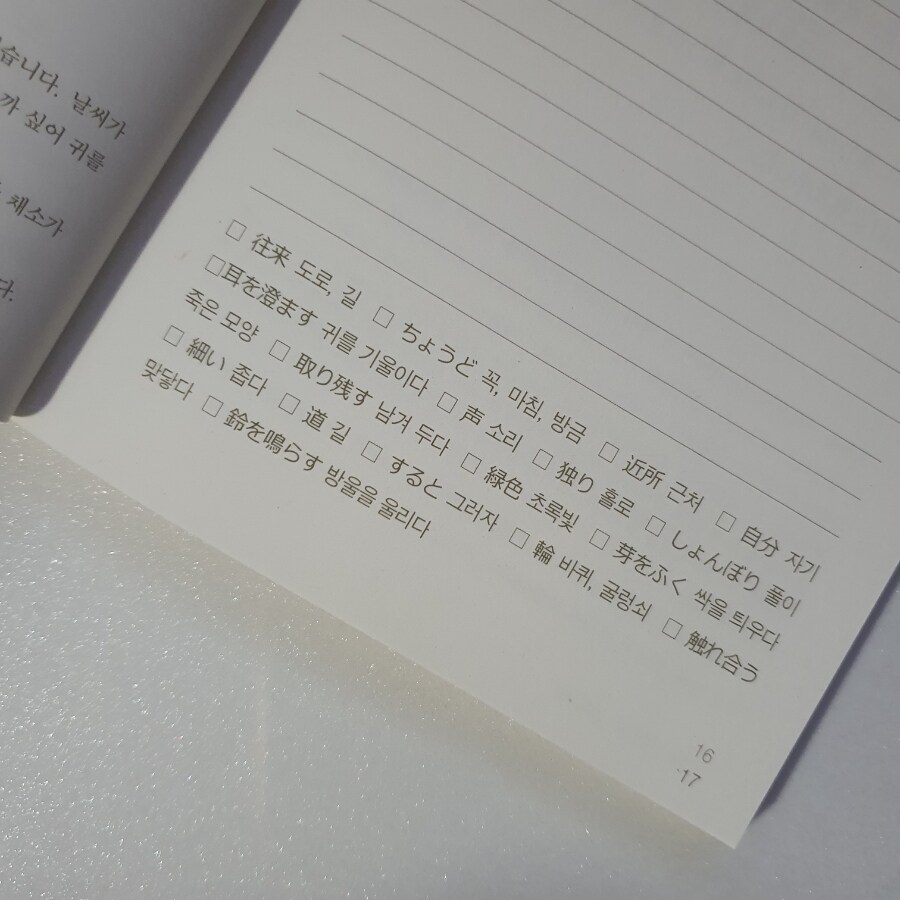 습니다. 날씨가
까 싶어 귀를
채소가
다.
□ 往来 도로, 길 □ ちょうど 꼭, 마침, 방금 □ 近所 근처 □ 自分 자기
□耳を澄ます 귀를 기울이다 □ 声 소리 □ 独り 홀로 □ しょんぼり 풀이
죽은 모양 □ 取り残す 남겨 두다 □ 緑色 초록빛 □ 芽をふく 싹을 틔우다
□ 細い 좁다 □ 道 길 □ すると 그러자 □ 輪 바퀴, 굴렁쇠 □ 触れ合う
맞닿다 □ 鈴を鳴らす 방울을 울리다
16
17